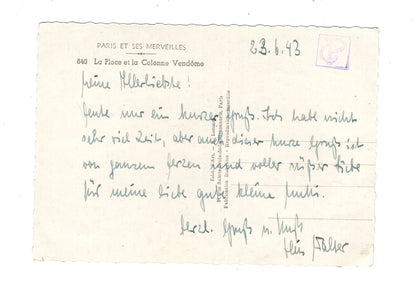 PARIS ET SES MERVEILLES
23.6.43
840 La Place et la Colonne Vendôme
Meine Allerliebste!
Heute nur ein kurzer Gruß. Ich habe nicht
sehr viel Zeit, aber auch dieser kurze Gruß ist
von ganzem Herzen und voller süßer Liebe
für meine liebe gute kleine
Herzl. Gruß u. Kuß
Dein Walter